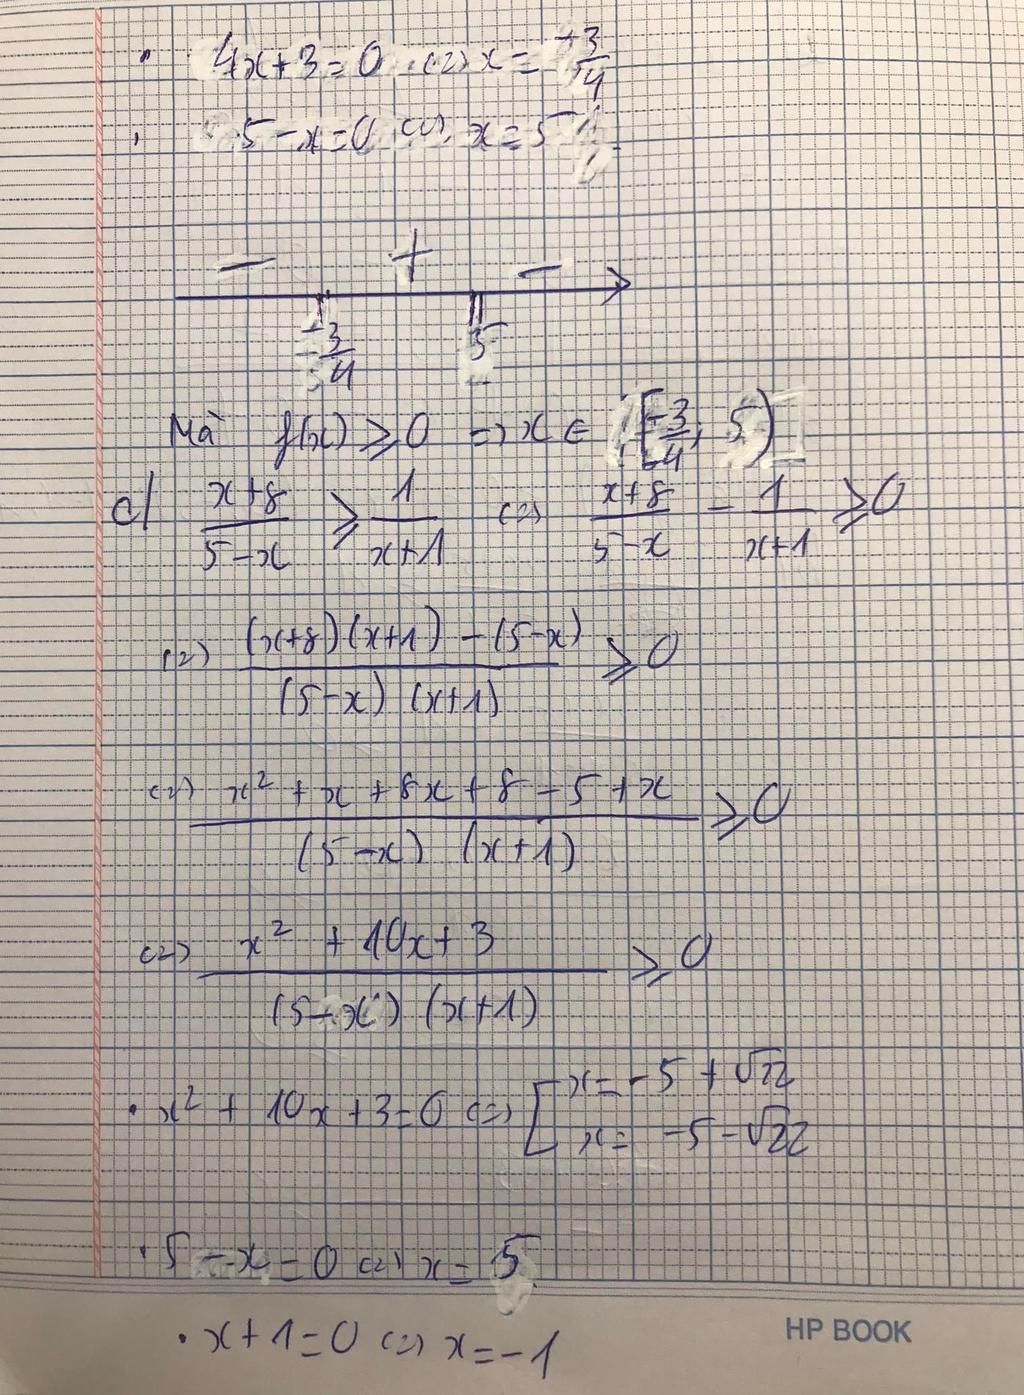 • 4x+3=0 (=) x=-3/4
• 5-x=0 (=) x=5
- + -
-3/4 5
Mà f(x) ⩾ 0 => x ∈ [-3/4; 5)
c/ (x+8)/(5-x) ⩾ 1/(x+1) (=) (x+8)/(5-x) - 1/(x+1) ⩾ 0
(=) ((x+8)(x+1) - (5-x))/((5-x)(x+1)) ⩾ 0
(=) (x² + x + 8x + 8 - 5 + x)/((5-x)(x+1)) ⩾ 0
(=) (x² + 10x + 3)/((5-x)(x+1)) ⩾ 0
• x² + 10x + 3 = 0 (=) [ x = -5 + √22
x = -5 - √22
• 5-x=0 (=) x=5
• x+1=0 (=) x=-1
HP BOOK